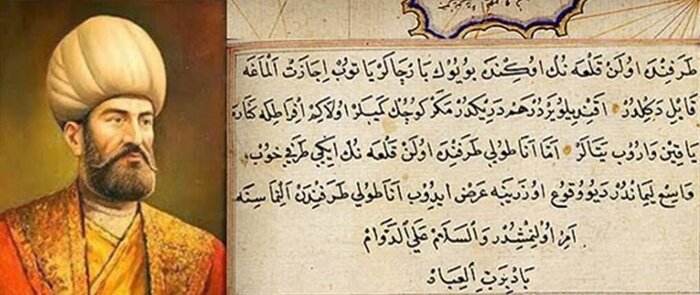 طرفندن اولن قلعه نك اوكندن بويوك بارجالر ياتوب اجازت آلماغه
قابل دكلدر اقنديلو يردر هم درنكدر مكر كوچك كميلر اولا كم افراطله كناره
ياقين واروب ياتالر اما اناطولى طرفندن اولن قلعه نك ايكى طرفى خوب
واسع ليماندر ديو وقوع اوزرينه عرض ايدوب اناطولى طرفندن النماسنه
امر اولنمشدر والسلام على الدوام
برب العباد